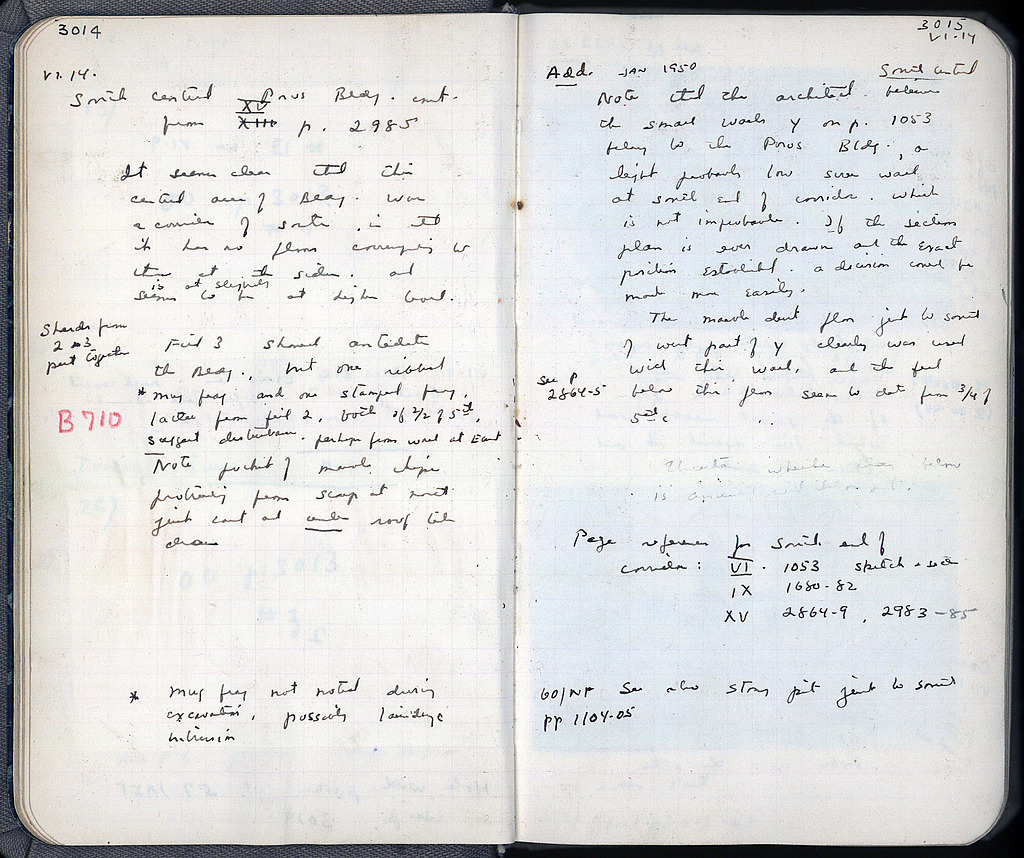 3014
VI.14.
South central Porus Bldg. cont.
from XIII XV p. 2985
It seems clear that this
central area of Bldg. was
a corridor of sorts, in that
it has no floors corresponding to
those at the sides. and
is at slightly
seems to be at higher level.
Sherds from
2 + 3
put together
Fill 3 should antedate
the Bldg., but one ribbed
* mug frag and one stamped frag,
latter from fill 2, both of 2/2 of 5th,
B 710
suggest disturbance. perhaps from well at East
Note pocket of marble chips
protruding from scarp at north
just east and under roof tile
drain
* Mug frag not noted during
excavation, possibly
intrusion
3015
VI.14
Add. JAN 1950 South Central
Note that the architect believes
the small walls y on p. 1053
belong to the Poros Bldg., a
light probably low screen wall
at south end of corridor. which
is not improbable. If the section
plan is ever drawn and the exact
position established. a decision could be
made more easily.
The marble dust floor just to south
of west part of y clearly was used
with this wall, and the fill
See p
2864-5
below this floor seems to date from 3/4 of
5th c
Uncertain whether
is
Page references for South end of
corridor: VI. 1053 sketch +
IX 1680-82
XV 2864-9, 2983-85
60/NF See also Story pit just to south
pp 1104-05